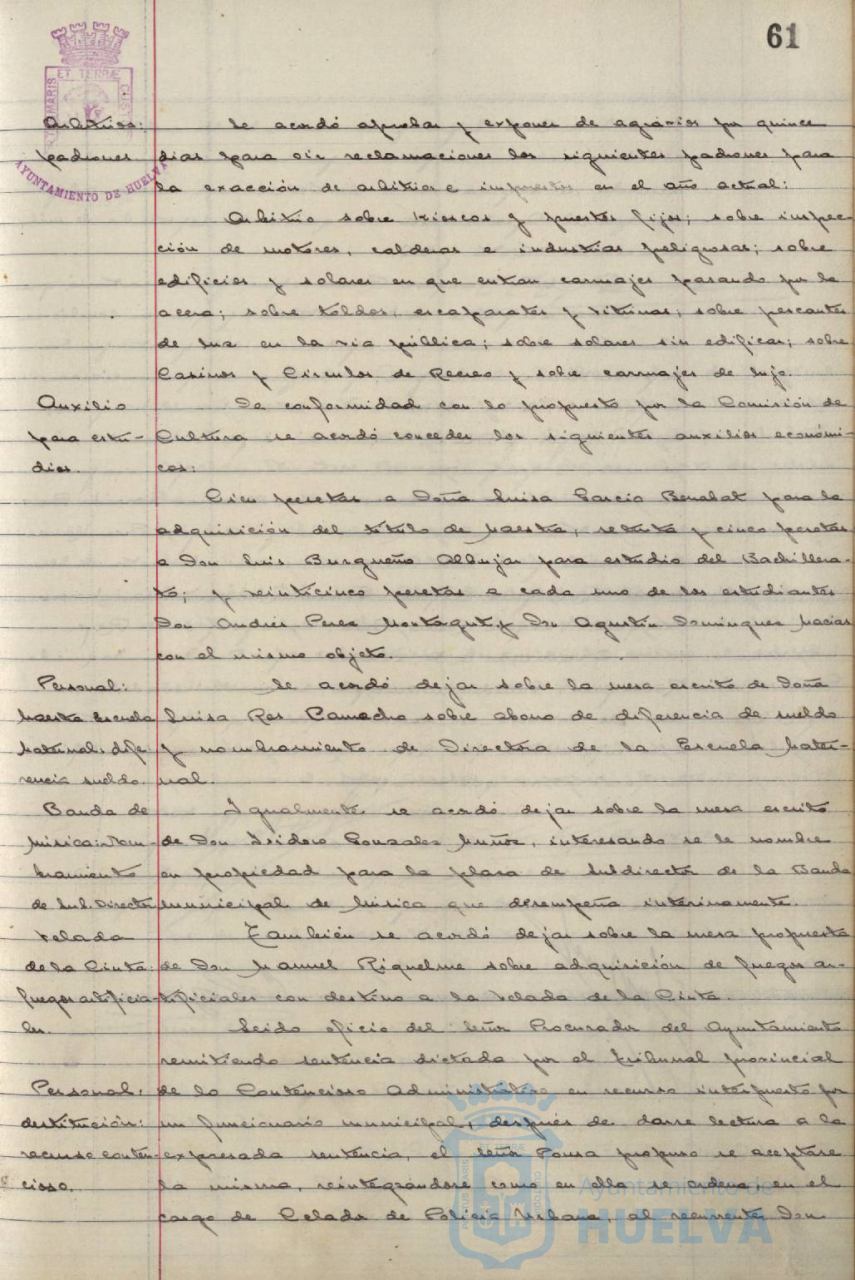 61
ET TERRÆ
MARIS
AYUNTAMIENTO DE HUELVA
Arbitrios:
padrones
Se acordó aprobar y exponer de agravios por quince
dias para oir reclamaciones los siguientes padrones para
la exacción de arbitrios e impuestos en el año actual:
Arbitrio sobre kioscos y puestos fijos; sobre inspec-
ción de motores, calderas e industrias peligrosas; sobre
edificios y solares en que entran carruajes pasando por la
acera; sobre toldos, escaparates y vitrinas; sobre pescantes
de luz en la via pública; sobre solares sin edificar; sobre
Casinos y Circulos de Recreo y sobre carruajes de lujo.
Auxilio
para estu-
dios.
De conformidad con lo propuesto por la Comisión de
Cultura se acordó conceder los siguientes auxilios económi-
cos:
Cien pesetas a Doña Luisa Garcia Benabat para la
adquisición del título de Maestra; setenta y cinco pesetas
a Don Luis Burgueño Albujar para estudio del Bachillera-
to; y veinticinco pesetas a cada uno de los estudiantes
Don Andrés Perez Montagut y Don Agustín Dominguez Macias
con el mismo objeto.
Personal:
Maestra Escuela
Maternal: dife
rencia sueldo.
Se acordó dejar sobre la mesa escrito de Doña
Luisa Ros Camacho sobre abono de diferencia de sueldo
y nombramiento de Directora de la Escuela Mater-
nal.
Banda de
Música: Nom-
bramiento
de Sub. Director
Igualmente se acordó dejar sobre la mesa escrito
de Don Isidoro Gonzalez Muñoz, interesando se le nombre
en propiedad para la plaza de Subdirector de la Banda
Municipal de Música que desempeña interinamente.
Velada
de la Cinta:
fuegos artificia-
les.
También se acordó dejar sobre la mesa propuesta
de Don Manuel Riquelme sobre adquisición de fuegos ar-
tificiales con destino a la Velada de la Cinta.
Leido oficio del Señor Procurador del Ayuntamiento
remitiendo sentencia dictada por el Tribunal provincial
Personal:
destitución:
recurso conten-
cioso.
de lo Contencioso Administrativo en recurso interpuesto por
un funcionario municipal, después de darse lectura a la
expresada sentencia, el Señor Ponsa propuso se aceptase
la misma, reintegrándose como en ella se ordena, en el
cargo de Celador de Policia Urbana, al recurrente, Don
Ayuntamiento de
HUELVA